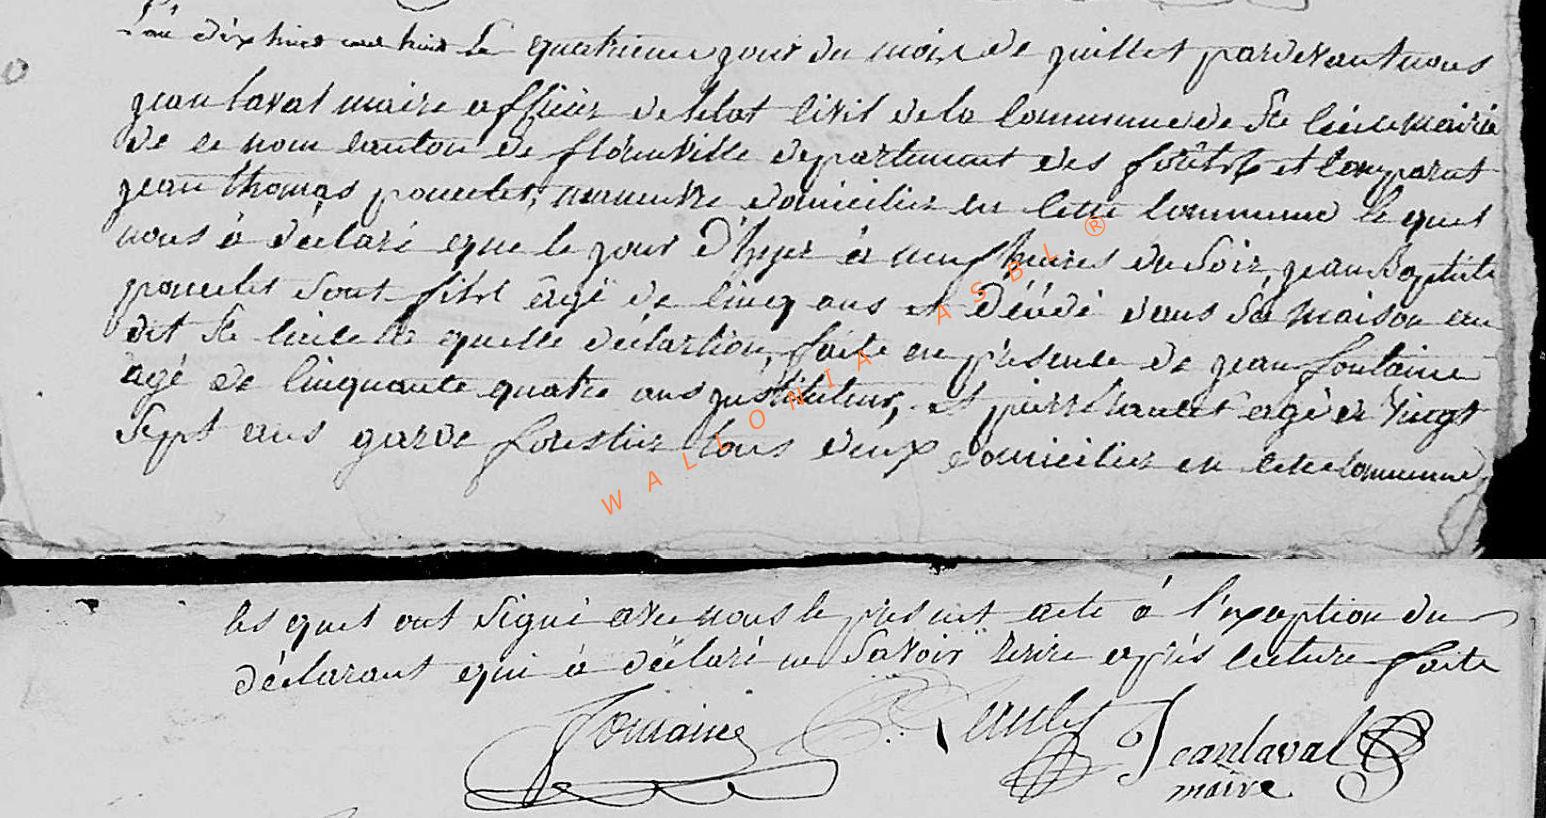 L'an dix huit cent huit le quatrieme jour du mois de juillet pardevant nous
jean laval maire officier de letat civil de la Commune de Ste Cécile mairie
de ce nom canton de florenville departement des forêts est Comparut
jean thomas poncelet, manœuvre domicilier en cette Commune le quel
nous à déclaré que le jour d'hyer à neuf heures du soir, jean Baptiste
poncelet sont fils âgé de cinq ans est décédé dans sa maison au
dit Ste Cécile la quelle déclartion, faite en présence de jean fontaine
agé de cinquante quatre ans justituteur, et pierre agé de vingt
Sept ans garde forestier tous deux domicilier en cette Commune
les quel ont signé avec nous le présent acte à l'exeption du
déclarant qui à déclaré ne savoir écrire après lecture faite
fontaine Jean laval
maire
WALLONIA ASBL ®